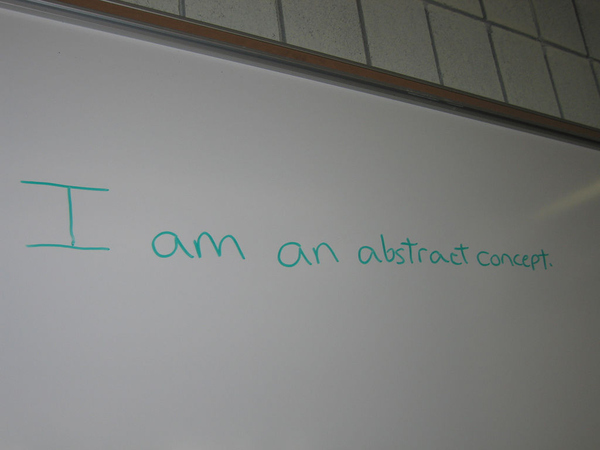 I am an abstract concept.